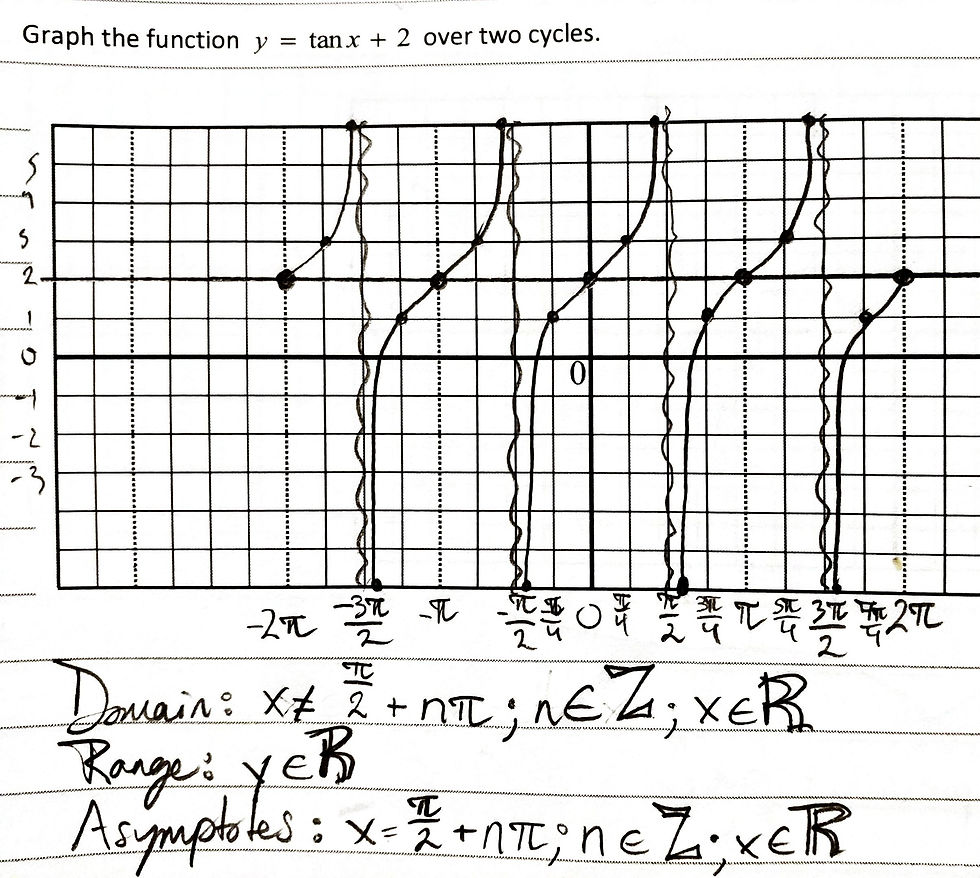 Graph the function y = tan x + 2 over two cycles.
5
4
3
2
1
0
0
-1
-2
-3
-2π -3π/2 -π -π/2 0 π/4 π/2 3π/4 π 5π/4 3π/2 7π/4 2π
Domain: x ≠ π/2 + nπ; n ∈ ℤ; x ∈ ℝ
Range: y ∈ ℝ
Asymptotes: x = π/2 + nπ; n ∈ ℤ; x ∈ ℝ